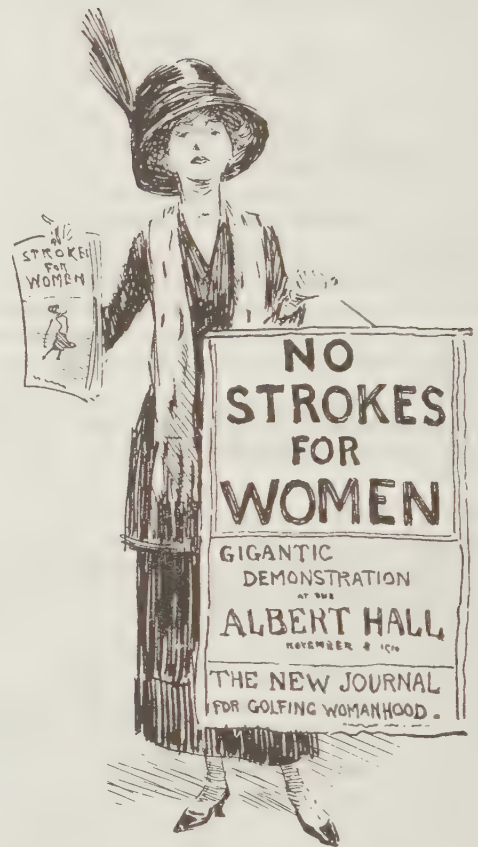 STROKES
FOR
WOMEN
NO
STROKES
FOR
WOMEN
GIGANTIC
DEMONSTRATION
AT THE
ALBERT HALL
NOVEMBER
THE NEW JOURNAL
FOR GOLFING WOMANHOOD.